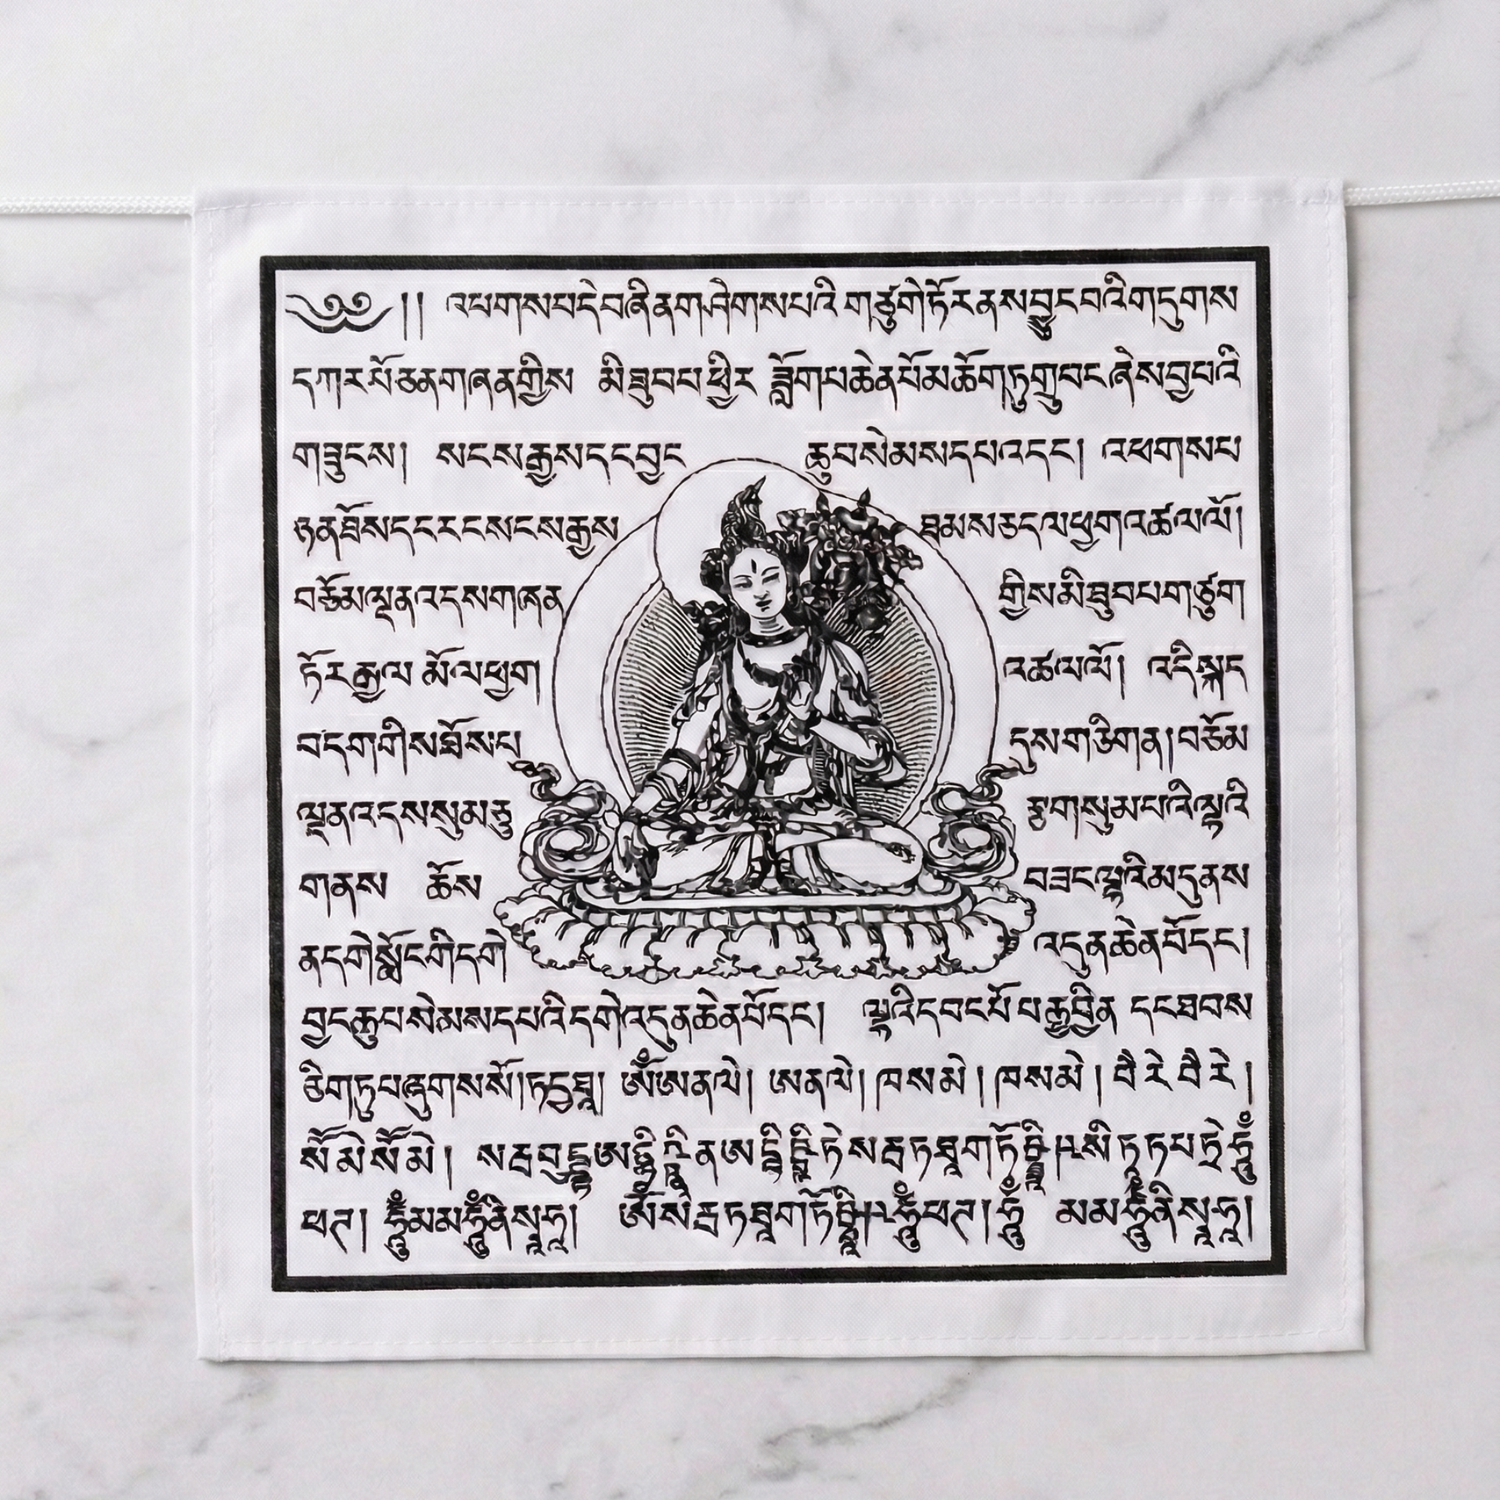 ༄༅།། འཕགས་པ་དེ་བཞིན་གཤེགས་པའི་གཙུག་ཏོར་ནས་བྱུང་བའི་གདུགས
དཀར་པོ་ཅན་གཞན་གྱིས མི་ཐུབ་པ་ཕྱིར་ཟློག་པ་ཆེན་པོ་མཆོག་ཏུ་གྲུབ་པ་ཞེས་བྱ་བའི
གཟུངས། སངས་རྒྱས་དང་བྱང་ཆུབ་སེམས་དཔའ་དང་། འཕགས་པ
ཉན་ཐོས་དང་རང་སངས་རྒྱས་ཐམས་ཅད་ལ་ཕྱག་འཚལ་ལོ།
བཅོམ་ལྡན་འདས་གཞན་གྱིས་མི་ཐུབ་པ་གཙུག
ཏོར་རྒྱལ་མོ་ལ་ཕྱག་འཚལ་ལོ། འདི་སྐད
བདག་གིས་ཐོས་པ་དུས་གཅིག་ན། བཅོམ
ལྡན་འདས་སུམ་ཅུ་རྩ་གསུམ་པའི་ལྷའི
གནས ཆོས་བཟང་ལྷའི་མདུན་ས
ན་དགེ་སློང་གི་དགེ་འདུན་ཆེན་པོ་དང་།
བྱང་ཆུབ་སེམས་དཔའི་དགེ་འདུན་ཆེན་པོ་དང་། ལྷའི་དབང་པོ་བརྒྱ་བྱིན་དང་ཐབས
ཅིག་ཏུ་བཞུགས་སོ། ཏདྱཐཱ། ཨོཾ་ཨ་ན་ལེ། ཨ་ན་ལེ། ཁ་ས་མེ། ཁ་ས་མེ། བཻ་རེ་བཻ་རེ།
སོ་མེ་སོ་མེ།
ཕཊ། ཧཱུྃ་མ་མ་ཧཱུྃ་ནི་སྭཱཧཱ།